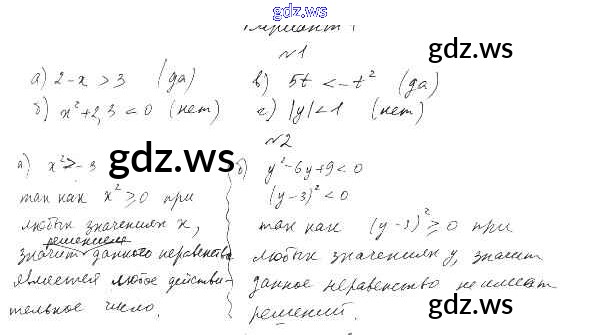 gdz.ws
Вариант 1
№1
gdz.ws
а) 2-x > 3 (да)
в) 5t < -t² (да)
б) x²+2,3 < 0 (нет)
г) |y| < 1 (нет)
№2
gdz.ws
а) x² > -3
так как x² ≥ 0 при
любых значениях x,
решением
значит данного неравенства
является любое действи-
тельное число.
б) y²-6y+9 < 0
(y-3)² < 0
так как (y-3)² ≥ 0 при
любых значениях y, значит
данное неравенство не имеет
решений.
gdz.ws